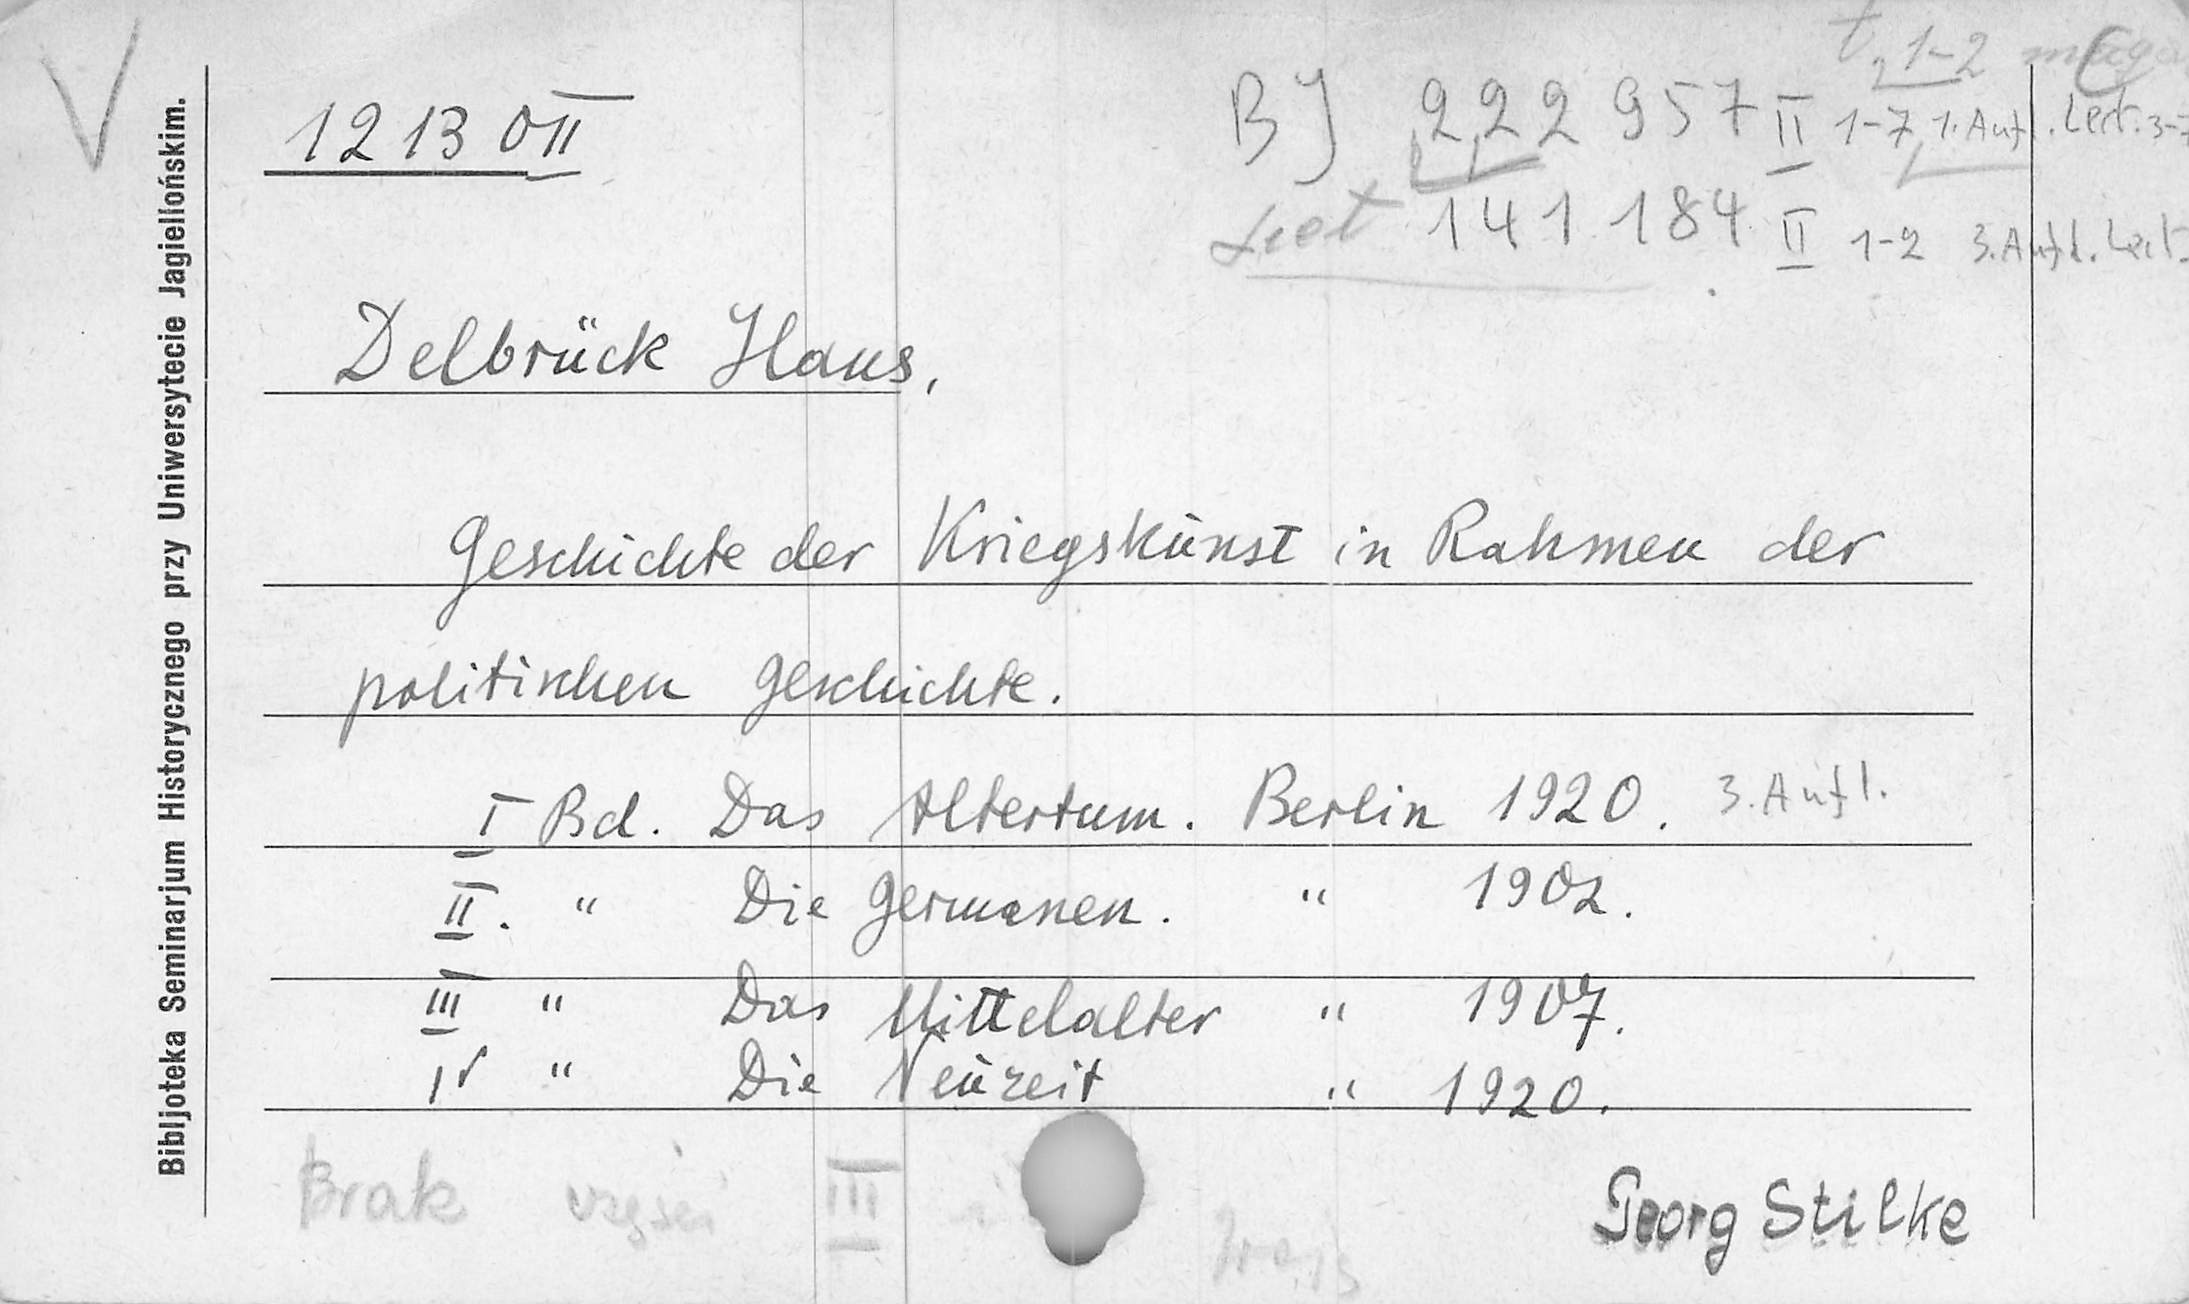 t. 1-2
1213 0 II
BJ 222 957 II 1-7 1. Aufl. Lect. 3-7
Lect 141 184 II 1-2 3. Aufl. Lect.
Delbrück Hans,
Geschichte der Kriegskunst in Rahmen der
politischen Geschichte.
I Bd. Das Altertum. Berlin 1920. 3. Aufl.
II. " Die Germanen. " 1902.
III " Das Mittelalter " 1907.
IV " Die Neuzeit " 1920.
Brak części III i
Georg Stilke
Bibljoteka Seminarjum Historycznego przy Uniwersytecie Jagiellońskim.